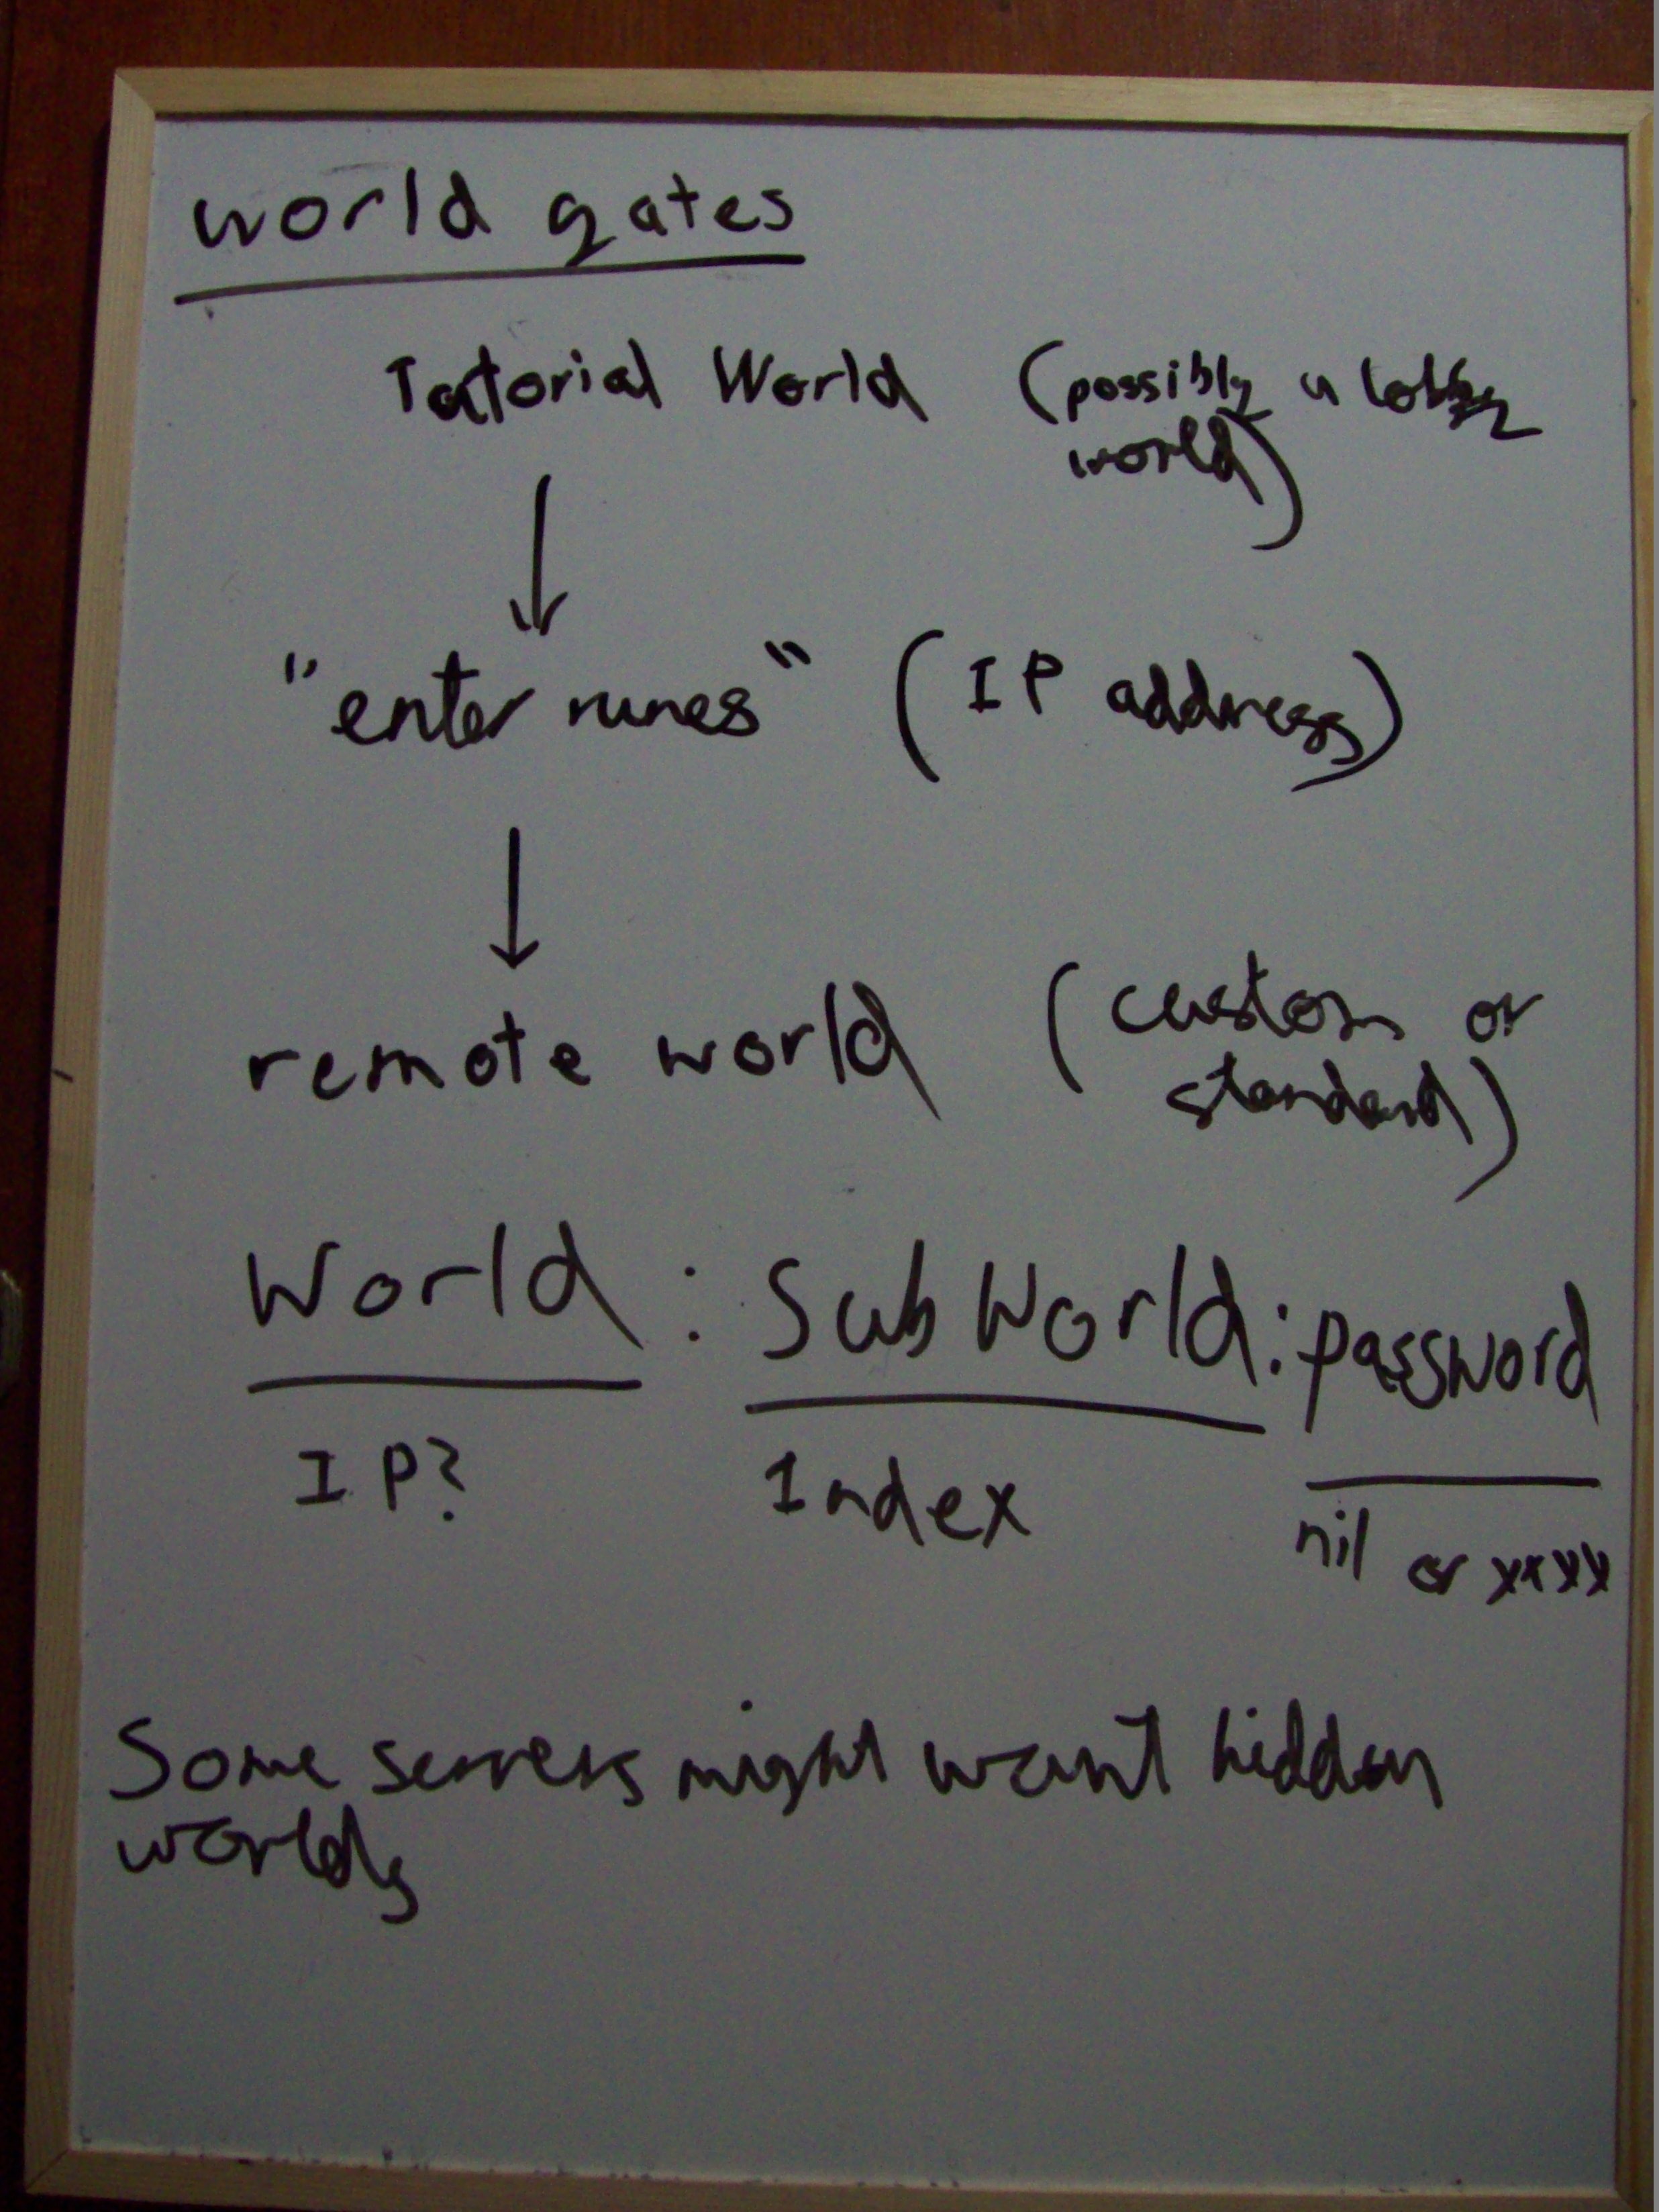 world gates
Tutorial World (possibly a lobby
world)
"enter runes" (IP address)
remote world (custom or
standard)
World : SubWorld : password
IP? Index nil or xxxx
Some servers might want hidden
worlds